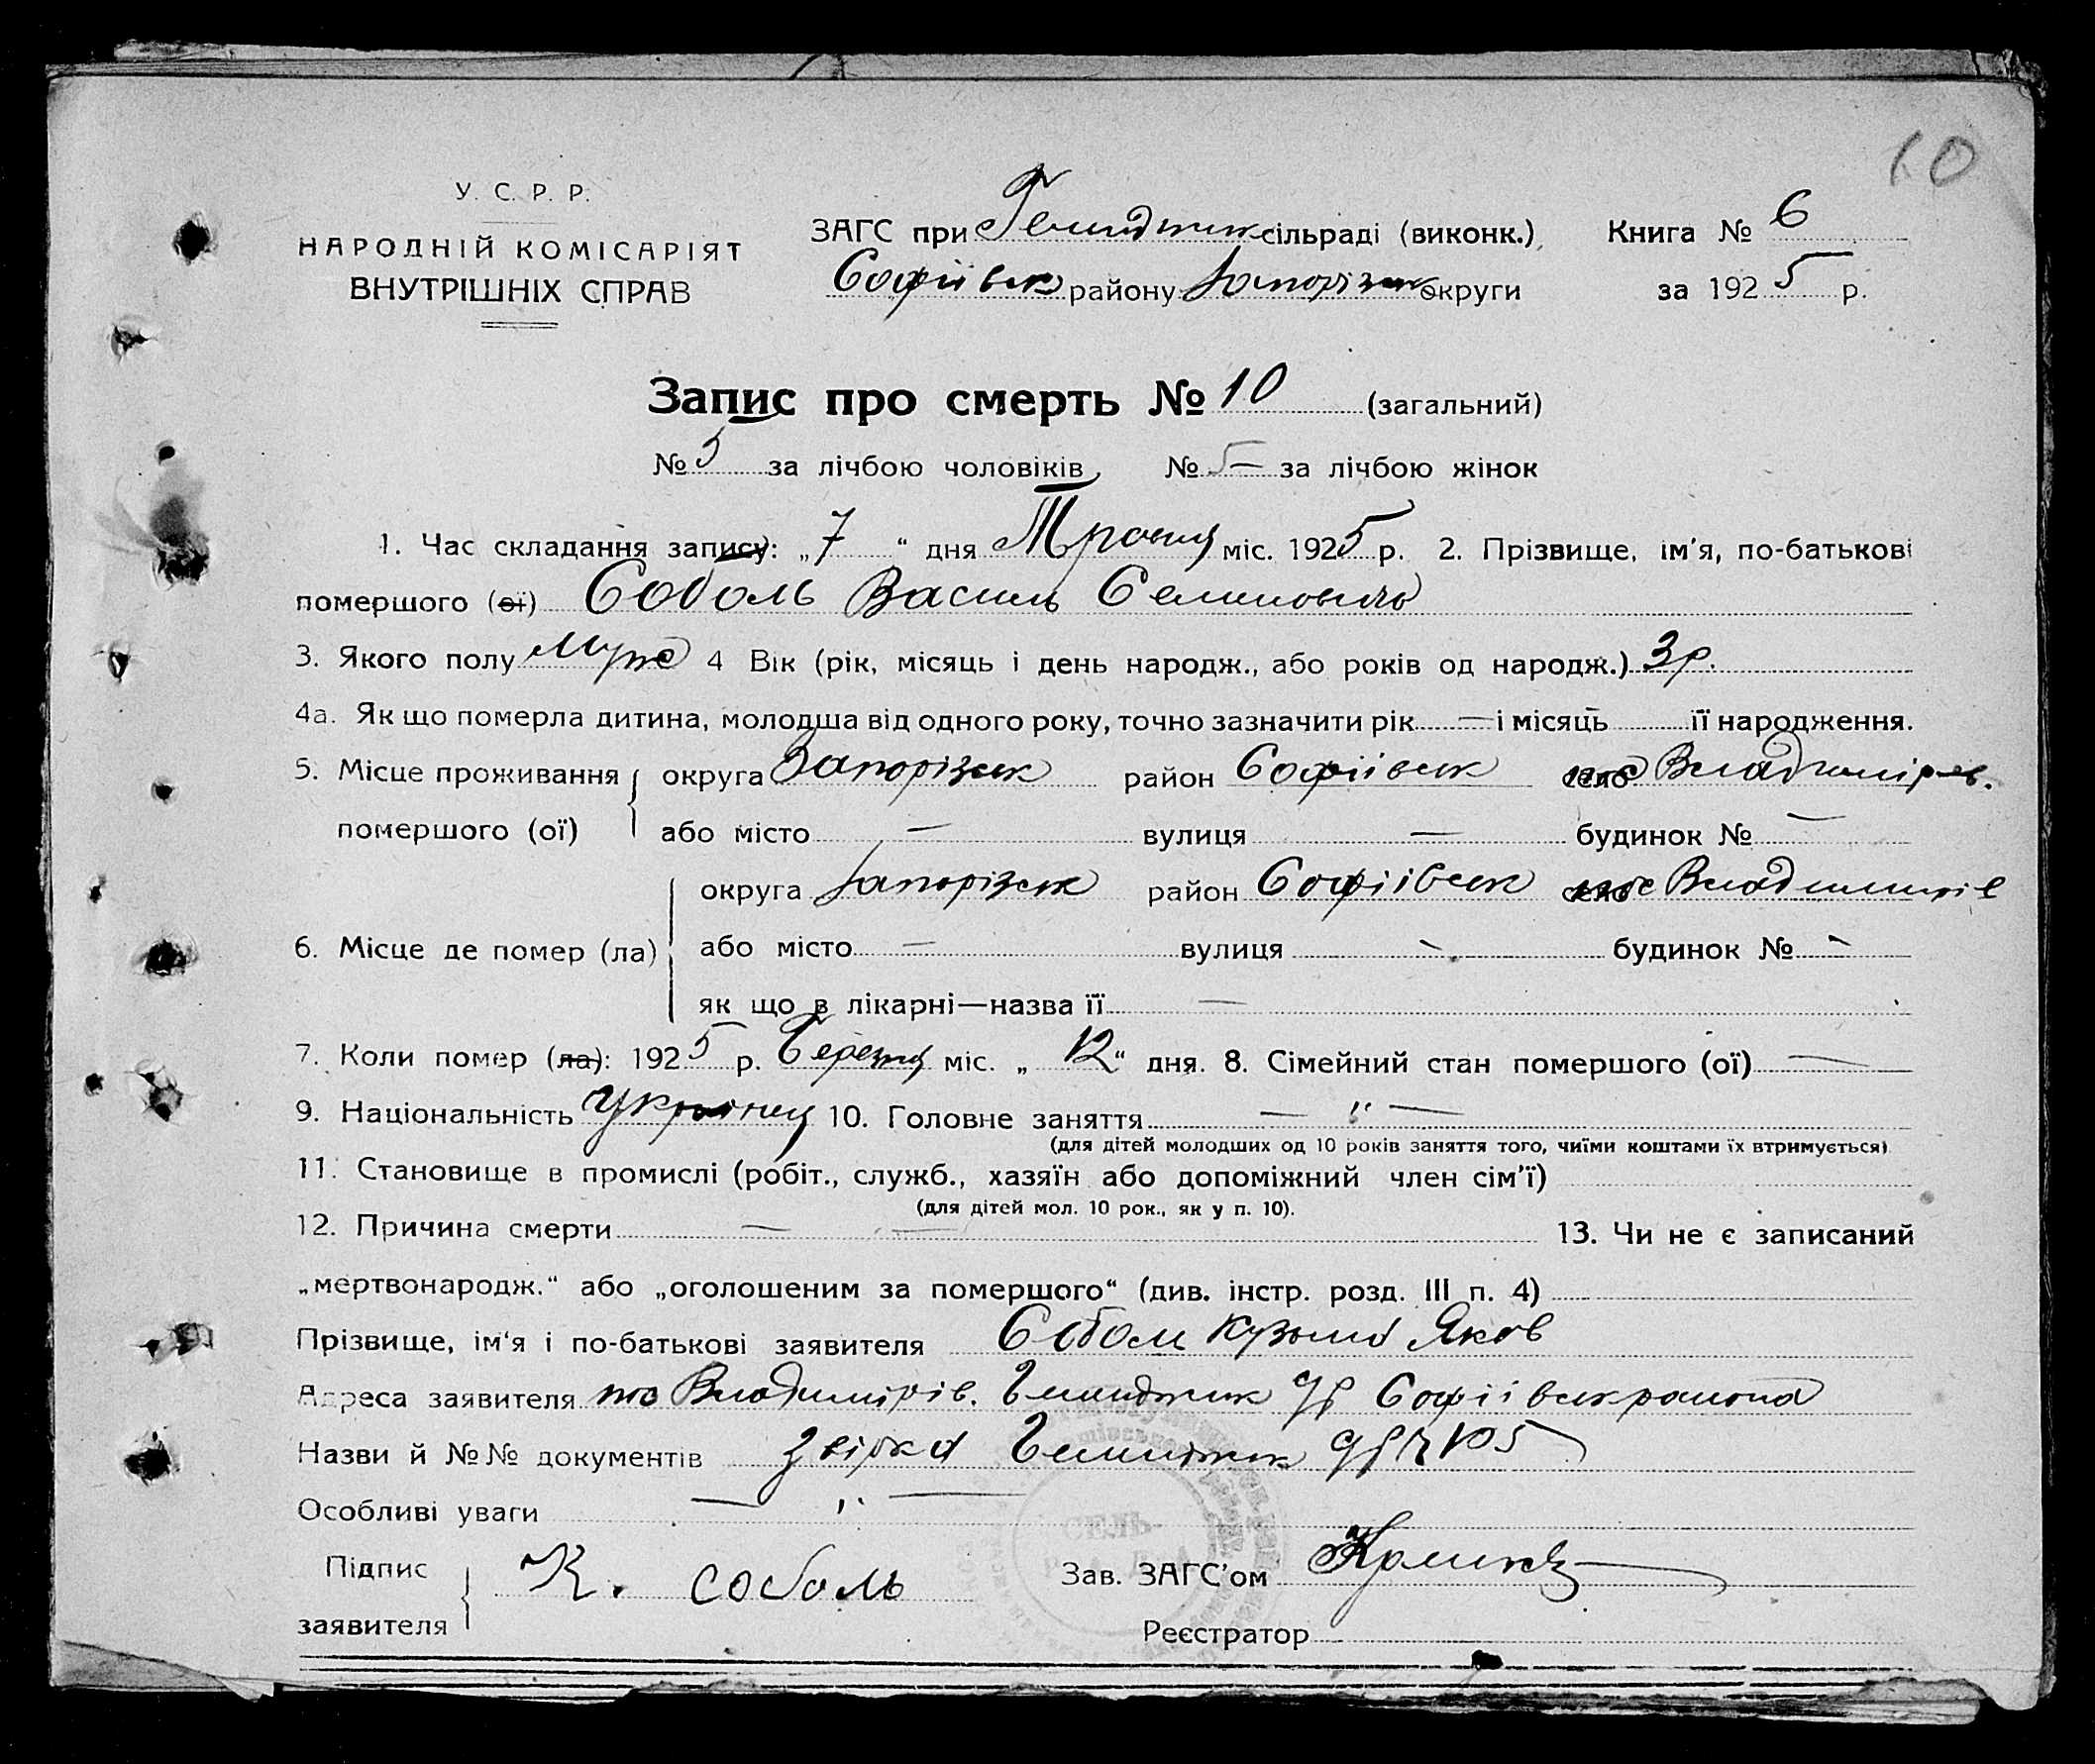 10
У. С. Р. Р.
НАРОДНІЙ КОМІСАРІЯТ
ВНУТРІШНІХ СПРАВ
ЗАГС при сільраді (виконк.)
Книга № 6
Софіівськ району Запорізськ округи
за 1925 р.
Запис про смерть № 10 (загальний)
№ 5 за лічбою чоловіків № 5 — за лічбою жінок
1. Час складання запису: „7“ дня міс. 1925 р. 2. Прізвище, ім'я, по-батькові
помершого (ої) Соболь Василь Семенович
3. Якого полу Муже 4 Вік (рік, місяць і день народж., або років од народж.) 3 р.
4а. Як що померла дитина, молодша від одного року, точно зазначити рік — і місяць її народження.
5. Місце проживання округа Запорізськ район Софіівськ село Владимірів.
помершого (ої) або місто — вулиця — будинок № —
округа Запорізськ район Софіівськ село
6. Місце де помер (ла) або місто — вулиця - будинок № -
як що в лікарні—назва її —
7. Коли помер (ла): 1925 р. Березня міс. „12“ дня. 8. Сімейний стан помершого (ої) —
9. Національність 10. Головне заняття — " —
(для дітей молодших од 10 років заняття того, чиїми коштами їх втримується)
11. Становище в промислі (робіт., служб., хазяїн або допоміжний член сім'ї)
(для дітей мол. 10 рок., як у п. 10).
12. Причина смерти — — 13. Чи не є записаний
„мертвонародж.“ або „оголошеним за помершого“ (див. інстр. розд. III п. 4)
Прізвище, ім'я і по-батькові заявителя Соболь Кузьма Яков
Адреса заявителя Владимірів. с/р Софіівськ района
Назви й №№ документів с/р № 105
Особливі уваги — " —
СЕЛЬ-
Підпис
заявителя К. соболь
Зав. ЗАГС'ом
Реєстратор